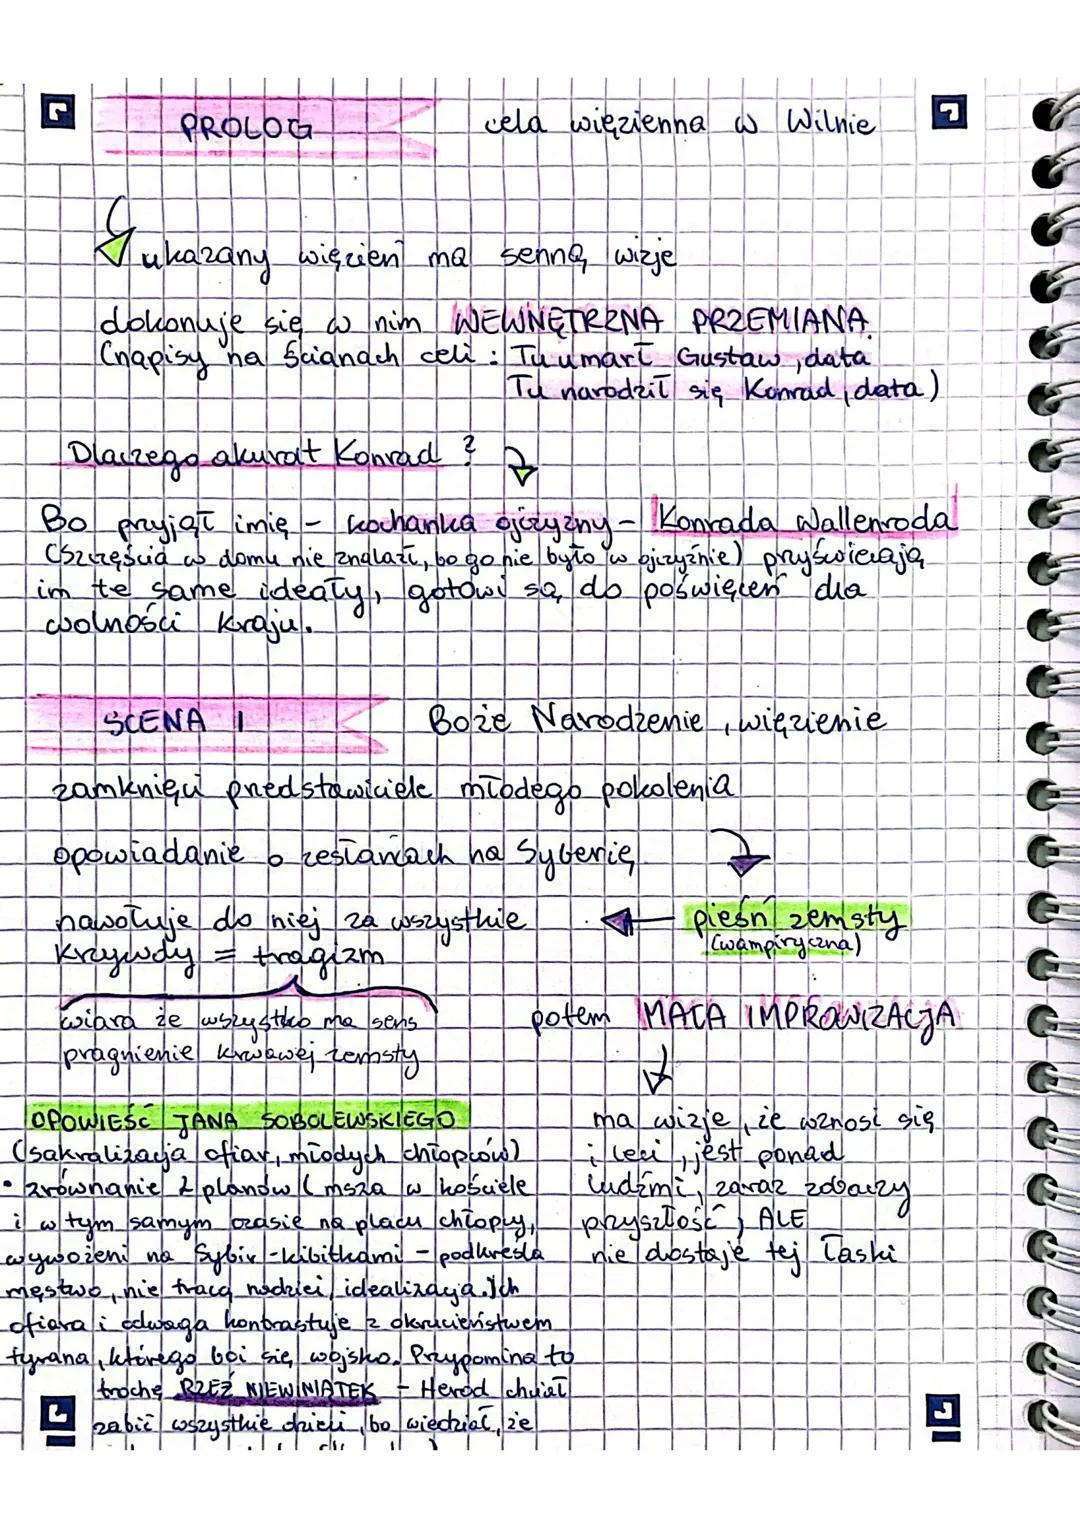 PROLOG cela więzienna w Wilnie
ukazany więzień ma senną wizje
dokonuje się w nim WEWNĘTRZNA PRZEMIANA
(napisy na ścianach celi : Tu umarł Gustaw, data
Tu narodził się Konrad, data)
Dlaczego akurat Konrad ?
Bo przyjął imię - kochanka ojczyzny - Konrada Wallenroda
(Szczęścia w domu nie znalazł, bo go nie było w ojczyźnie) przyświecają
im te same ideały, gotowi są do poświęceń dla
wolności kraju.
SCENA 1 Boże Narodzenie, więzienie
zamknięci przedstawiciele młodego pokolenia
opowiadanie o zesłańcach na Syberię
nawołuje do niej za wszystkie
krzywdy = tragizm
pieśń zemsty
(wampiryczna)
wiara że wszystko ma sens
pragnienie krwawej zemsty
potem MAŁA IMPROWIZACJA
OPOWIEŚĆ JANA SOBOLEWSKIEGO
(sakralizacja ofiar, młodych chłopców)
• zrównanie 2 planów (msza w kościele
i w tym samym czasie na placu chłopcy,
wywożeni na Sybir - kibitkami - podkreśla
męstwo, nie tracą nadziei, idealizacja. Ich
ofiara i odwaga kontrastuje z okrucieństwem
tyrana, którego boi się wojsko. Przypomina to
trochę RZEŹ NIEWINIĄTEK - Herod chciał
zabić wszystkie dzieci, bo wiedział, że
ma wizje, że wznosi się
i leci, jest ponad
ludźmi, zaraz zobaczy
przyszłość, ALE
nie dostaje tej łaski